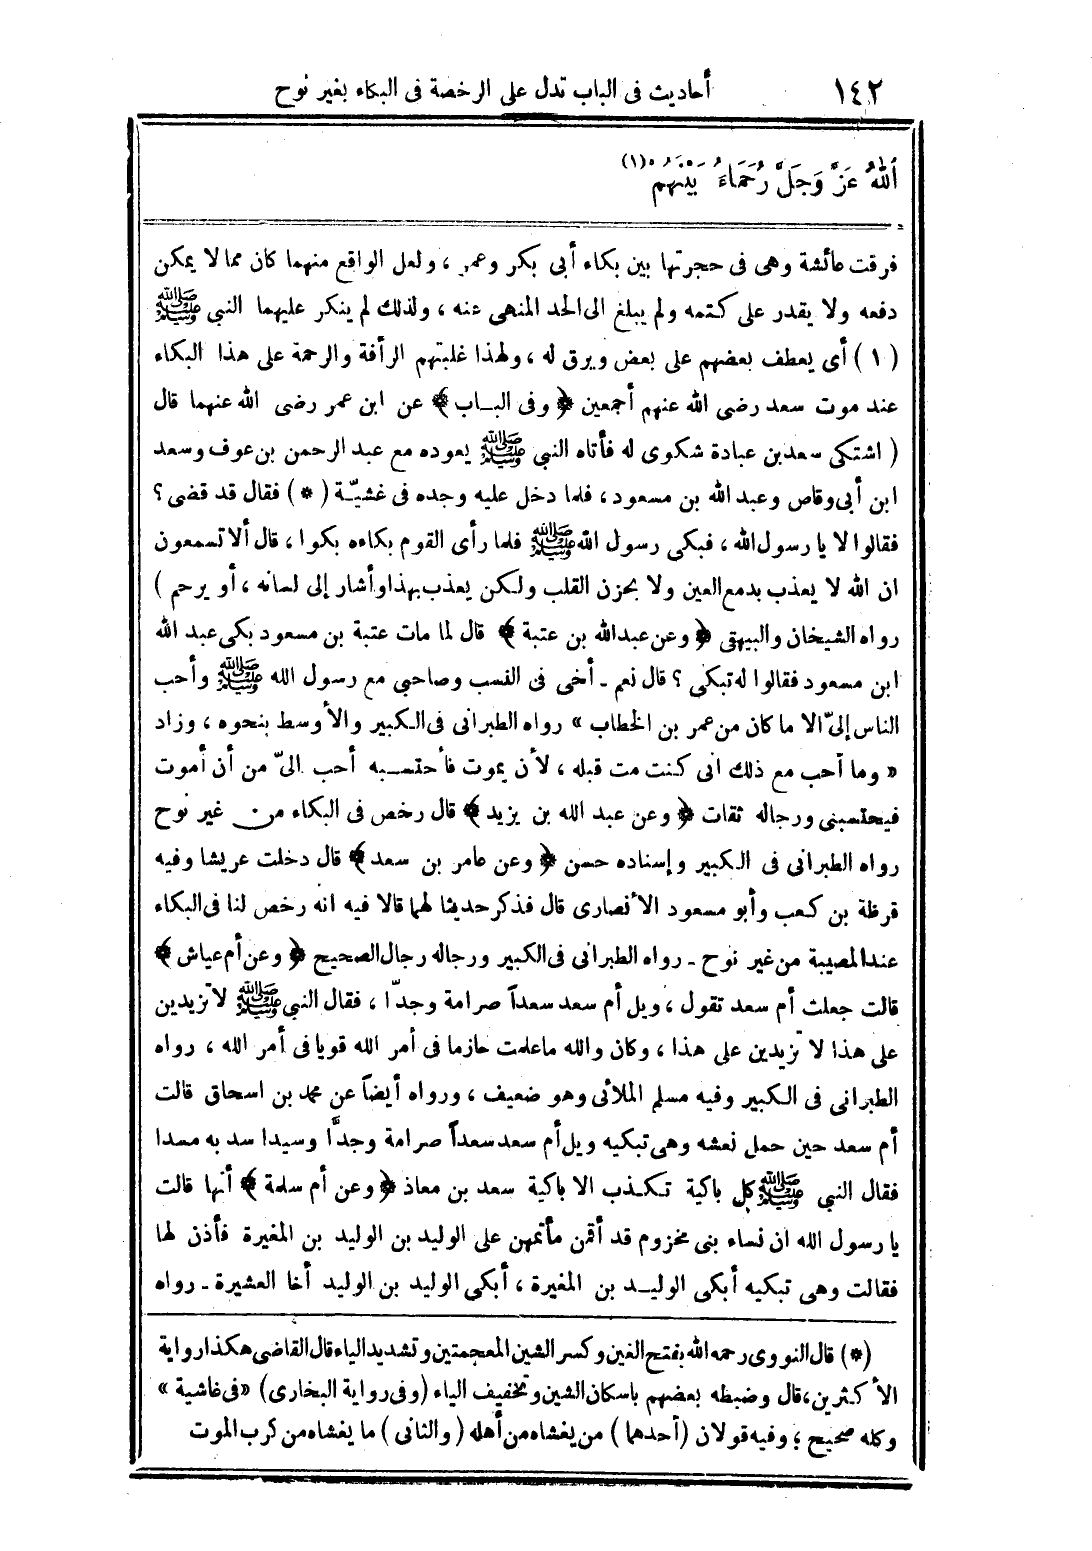 ١٤٢ أحاديث فى الباب تدل على الرخصة فى البكاء بغير نوح
اللهُ عَزَّ وَجَلَّ رُحَمَاءَ بَيْنَهُمْ (١)
فرقت عائشة وهى فى حجرتها بين بكاء أبى بكر وعمر ، ولعل الواقع منهما كان مما لا يمكن
دفعه ولا يقدر على كتمه ولم يبلغ الى الحد المنهى عنه ، ولذلك لم ينكر عليهما النبى ﷺ
( ١ ) أى يعطف بعضهم على بعض ويرق له ، ولهذا غلبتهم الرأفة والرحمة على هذا البكاء
عند موت سعد رضى الله عنهم أجمعين ﴿ وفى البـاب ﴾ عن ابن عمر رضى الله عنهما قال
( اشتكى سعد بن عبادة شكوى له فأتاه النبى ﷺ يعوده مع عبد الرحمن بن عوف وسعد
ابن أبى وقاص وعبد الله بن مسعود ، فلما دخل عليه وجده فى غشيّة ( * ) فقال قد قضى ؟
فقالوا لا يا رسول الله ، فبكى رسول الله ﷺ فلما رأى القوم بكاءه بكوا ، قال ألا تسمعون
ان الله لا يعذب بدمع العين ولا بحزن القلب ولكن يعذب بهذا وأشار إلى لسانه ، أو يرحم )
رواه الشيخان والبيهقى ﴿ وعن عبد الله بن عتبة ﴾ قال لما مات عتبة بن مسعود بكى عبد الله
ابن مسعود فقالوا له تبكى ؟ قال نعم ـ أخى فى النسب وصاحبى مع رسول الله ﷺ وأحب
الناس إلىّ الا ما كان من عمر بن الخطاب » رواه الطبرانى فى الكبير والأوسط بنحوه ، وزاد
« وما أحب مع ذلك انى كنت مت قبله ، لأن يموت فأحتسـبه أحب الىّ من أن أموت
فيحتسبنى ورجاله ثقات ﴿ وعن عبد الله بن يزيد ﴾ قال رخص فى البكاء من غير نوح
رواه الطبرانى فى الكبير وإسناده حسن ﴿ وعن عامر بن سعد ﴾ قال دخلت عريشا وفيه
قرظة بن كعب وأبو مسعود الأنصارى قال فذكر حديثا لهما قالا فيه انه رخص لنا فى البكاء
عند المصيبة من غير نوح ـ رواه الطبرانى فى الكبير ورجاله رجال الصحيح ﴿ وعن أم عياش ﴾
قالت جعلت أم سعد تقول ، ويل أم سعد سعداً صرامة وجدّا ، فقال النبى ﷺ لا تزيدين
على هذا لا تزيدين على هذا ، وكان والله ماعلمت حازما فى أمر الله قويا فى أمر الله ، رواه
الطبرانى فى الكبير وفيه مسلم الملائى وهو ضعيف ، ورواه أيضاً عن محمد بن اسحاق قالت
أم سعد حين حمل نعشه وهى تبكيه ويل أم سعد سعداً صرامة وجدًّا وسيدا سد به مسدا
فقال النبى ﷺ كل باكية تكـذب الا باكية سعد بن معاذ ﴿ وعن أم سلمة ﴾ أنها قالت
يا رسول الله ان نساء بنى مخزوم قد أقمن مأتمهن على الوليد بن الوليد بن المغيرة فأذن لها
فقالت وهى تبكيه أبكى الوليـد بن المغيرة ، أبكى الوليد بن الوليد أخا العشيرة ـ رواه
(*) قال النووى رحمه الله بفتح الغين وكسر الشين المعجمتين وتشديد الياء قال القاضى هكذا رواية
الأكثرين، قال وضبطه بعضهم باسكان الشين وتخفيف الياء (وفى رواية البخارى) «فى غاشية »
وكله صحيح ؛ وفيه قولان (أحدهما ) من يغشاه من أهله ( والثانى ) ما يغشاه من كرب الموت